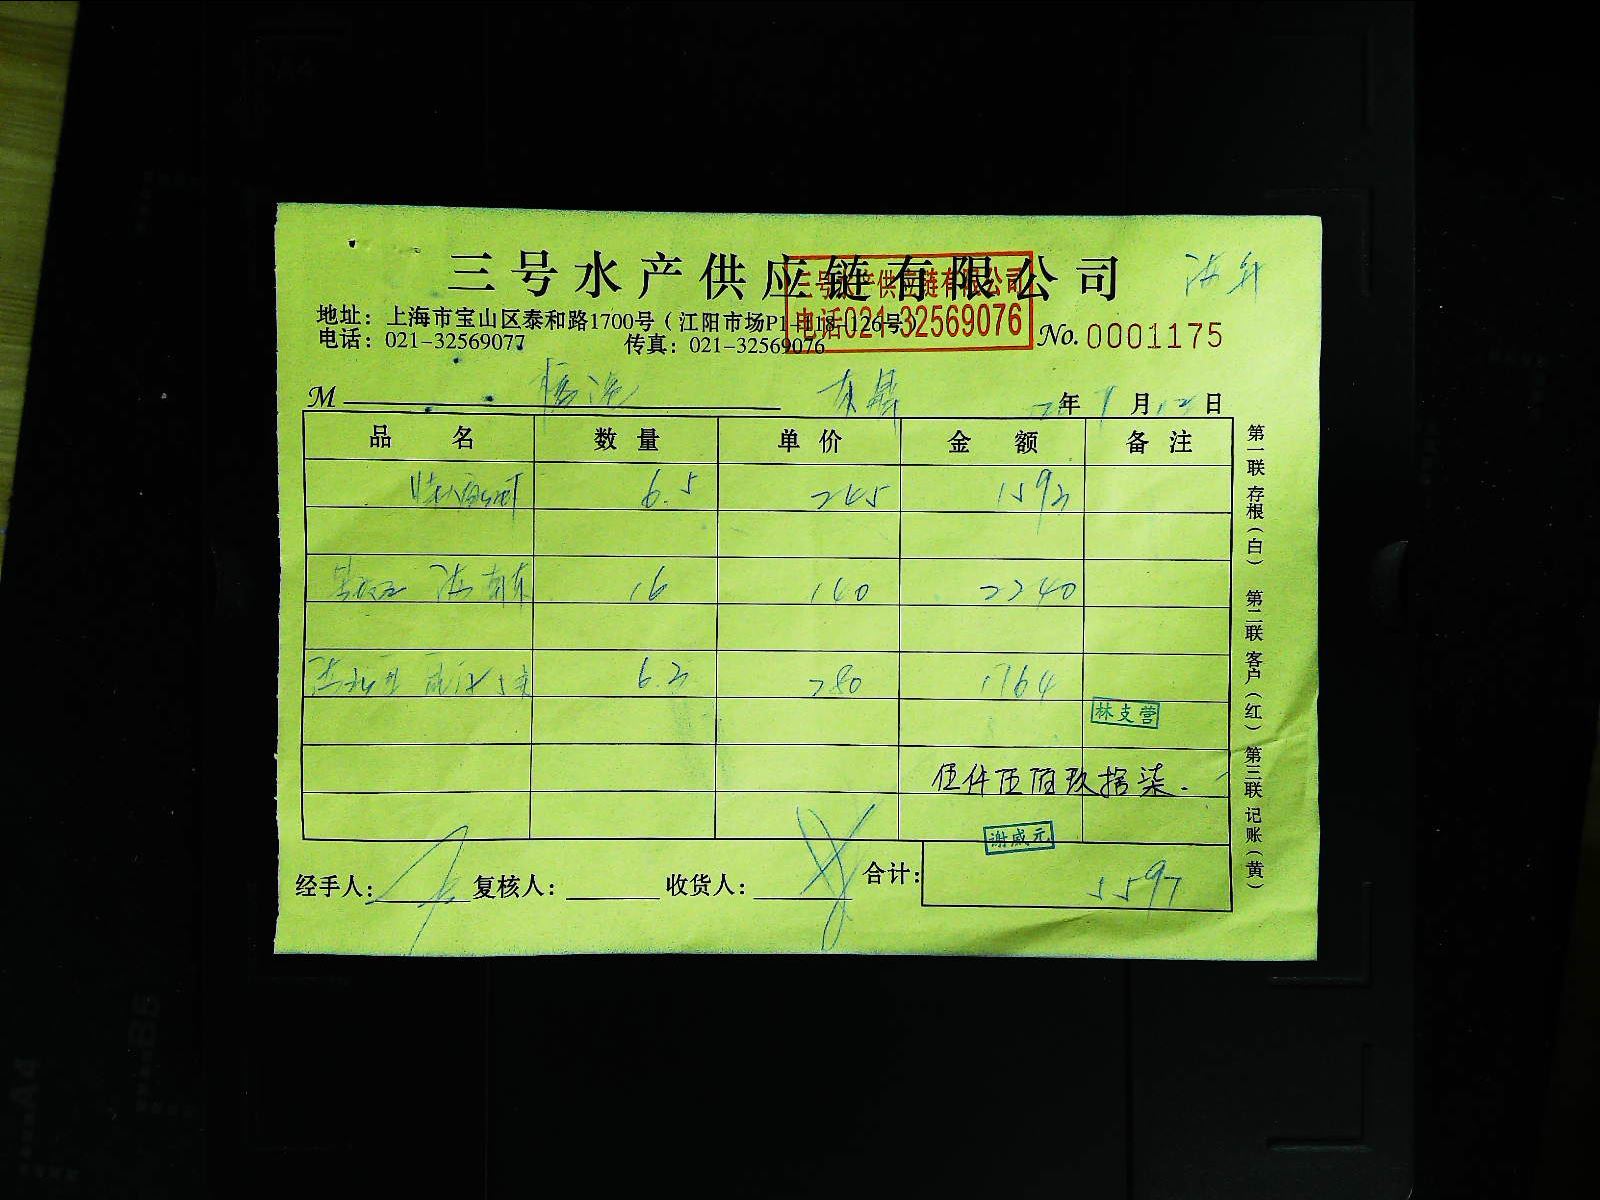 三号水产供应链有限公司
三号水产供应链有限公司
电话021-32569076
地址：上海市宝山区泰和路1700号（江阳市场P1-118-126号）
电话：021-32569077 传真：021-32569076
No.0001175
M
年 月 日
品名 数量 单价 金额 备注
6.5 245 1593
16 140 2240
6.3 280 1764
林支营
伍仟伍佰玖拾柒.
谢威元
经手人： 复核人： 收货人： 合计： 5597
第一联 存根（白） 第二联 客户（红） 第三联 记账（黄）